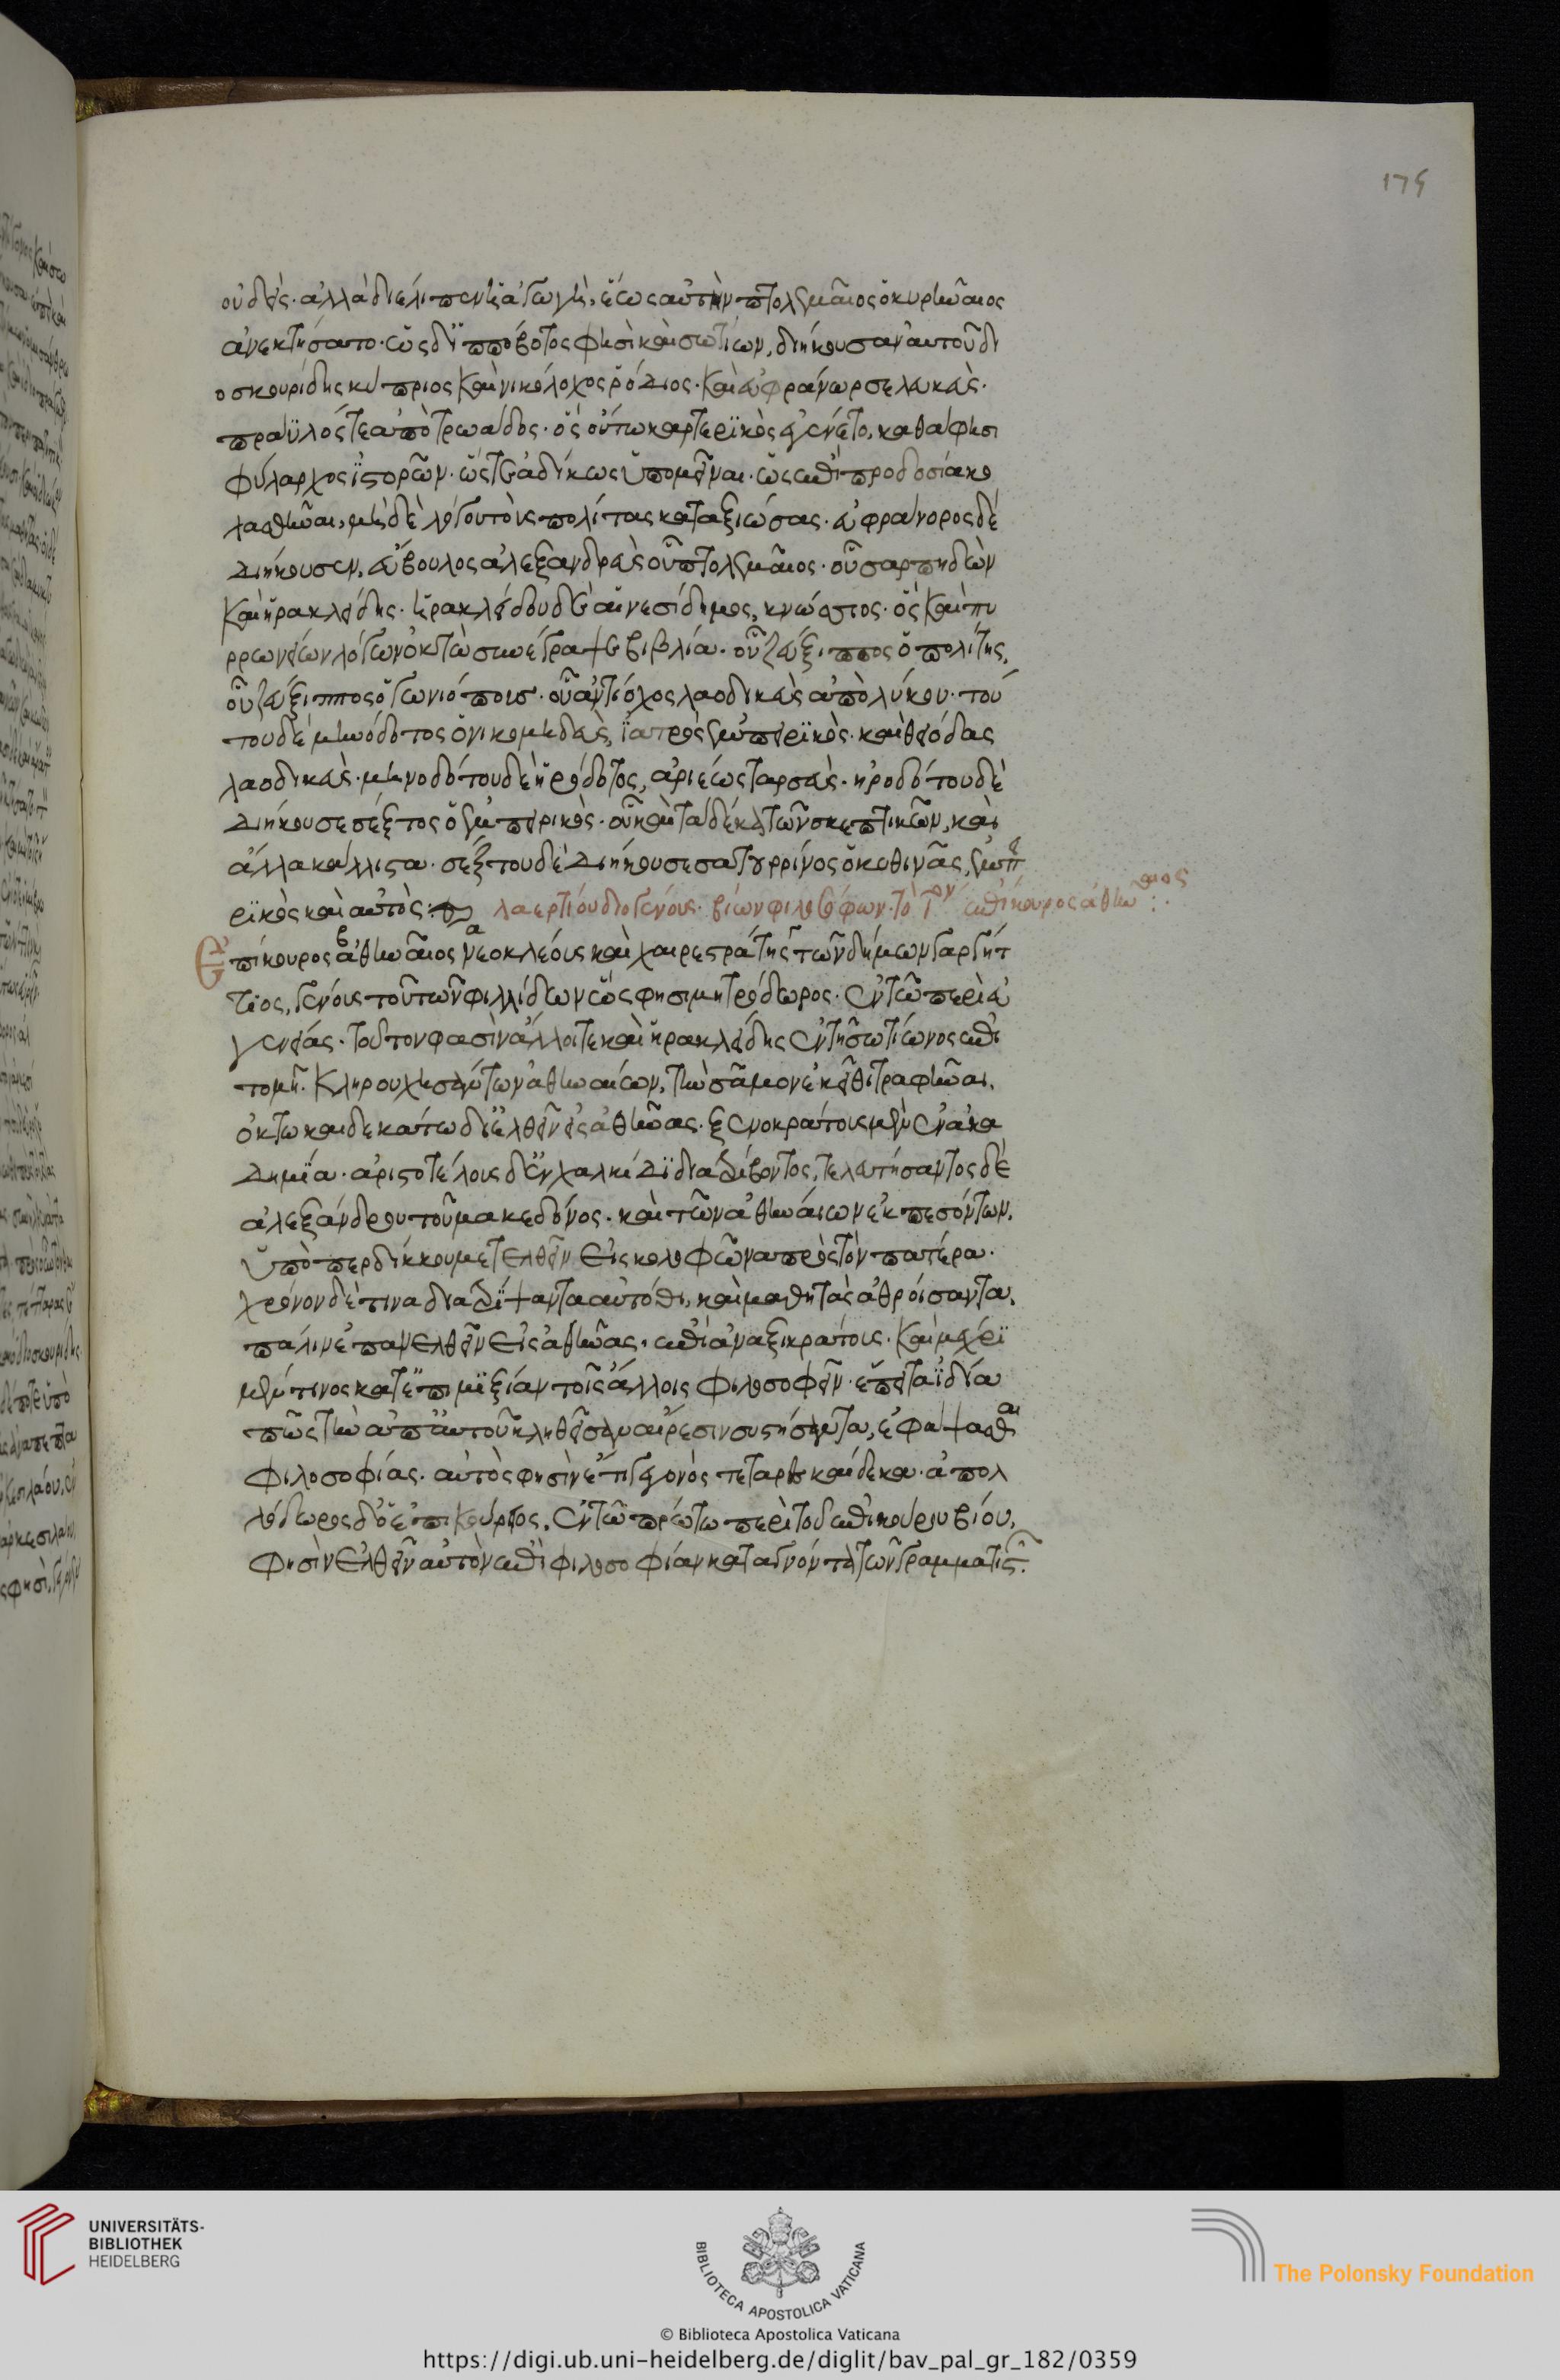 179
οὐδείς· ἀλλὰ διέλιπεν ἡ ἀγωγὴ, ἕως αὐτὴν πτολεμαῖος ὁ κυρηναῖος
ἀνεκτήσατο· ὡς δ' ἱππόβοτος φησὶ καὶ σωτίων, διήκουσαν αὐτοῦ δι
οσκουρίδης κύπριος καὶ νικόλοχος ῥόδιος· καὶ εὐφράνωρ σελευκεὺς·
πραΰλός τε ἀπὸ τρωάδος· ὃς οὕτω καρτερϊκὸς ἐγένετο, καθά φησι
φύλαρχος ἱστορῶν· ὥστε ἀδίκως ὑπομεῖναι· ὡς ἐπὶ προδοσία κο
λασθῆναι, μηδὲ λόγου τοὺς πολίτας καταξιώσας· εὐφράνορος δὲ
διήκουσεν, εὔβουλος ἀλεξανδρεὺς οὗ πτολεμαῖος· οὗ σαρπηδὼν
καὶ ἡρακλείδης· ἡρακλείδου δὲ αἰνεσίδημος, κνώσιος· ὃς καὶ πυ
ρρωνείων λόγων ὀκτὼ συνέγραψε βιβλία· οὗ ζεύξιππος ὁ πολίτης,
οὗ ζεύξιππος ὁ γωνιόπους· οὗ ἀντίοχος λαοδικεὺς ἀπὸ λύκου· τού
του δὲ μηνόδοτος ὁ νικομηδεὺς, ἰατρὸς ἐμπειρϊκὸς· καὶ θειόδας
λαοδικεὺς· μηνοδότου δὲ ἡρόδοτος, ἀριέως ταρσεὺς· ἡροδότου δὲ
διήκουσε σέξτος ὁ ἐμπειρικὸς· οὗ καὶ τὰ δέκα τῶν σκεπτικῶν, καὶ
ἄλλα κάλλιστα· σέξτου δὲ διήκουσε σατυρρίνος ὁ κυθινᾶς, ἐμπει
ρϊκὸς καὶ αὐτὸς·
λαερτίου διογένους· βίων φιλοσόφων· τὸ ἐπίκουρος ἀθηναῖος :·
Ἐπίκουρος ἀθηναῖος νεοκλέους καὶ χαιρεστράτης τῶν δήμων γαργήτ
τιος, γένους τοῦ τῶν φιλλιδῶν ὥς φησι μητρόδωρος· ἐν τῶ περὶ εὐ
γενείας· τοῦτον φασὶν ἄλλοι τε καὶ ἡρακλείδης ἐν τῆ σωτίωνος ἐπι
τομῆ· κληρουχησάντων ἀθηναίων, τὴν σάμον ἐκεῖθι τραφῆναι,
ὀκτωκαιδεκάτω δ' ἐλθεῖν εἰς ἀθήνας· ξενοκράτους μὲν ἐν ἀκα
δημία· ἀριστοτέλους δ' ἐν χαλκίδϊ διατρίβοντος, τελευτήσαντος δὲ
ἀλεξάνδρου τοῦ μακεδόνος· καὶ τῶν ἀθηναίων ἐκπεσόντων,
ὑπὸ περδίκκου μετελθεῖν εἰς κολοφῶνα πρὸς τὸν πατέρα·
χρόνον δὲ τινα διατρίψαντα αὐτόθι, καὶ μαθητὰς ἀθροίσαντα,
πάλιν ἐπανελθεῖν εἰς ἀθήνας· ἐπὶ ἀναξικράτους· καὶ μέχρϊ
μέν τινος κατ' ἐπιμϊξίαν τοῖς ἄλλοις φιλοσοφεῖν· ἔπειτα ἰδία
πῶς τὴν ἀπ' αὐτοῦ κληθεῖσαν αἵρεσιν συστήσαντα, ἐφάψασθαι
φιλοσοφίας· αὐτὸς φησὶν ἔτη γεγονὸς τεταρεσκαίδεκα· ἀπολ
λόδωρος δ' ὁ ἐπικούριος, ἐν τῶ πρώτω περὶ τοῦ ἐπικούρου βίου,
φησὶν ἐλθεῖν αὐτὸν ἐπὶ φιλοσοφίαν καταγνόντα τῶν γραμματισ
UNIVERSITÄTS-
BIBLIOTHEK
HEIDELBERG
BIBLIOTECA APOSTOLICA VATICANA
The Polonsky Foundation
© Biblioteca Apostolica Vaticana
https://digi.ub.uni-heidelberg.de/diglit/bav_pal_gr_182/0359